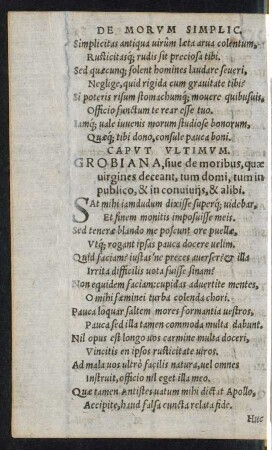 DE MORVM SIMPLIC.
Simplicitas antiqua uirûm læta arua colentum,
Rusticitasq́; rudis sit preciosa tibi.
Sed quæcunq; solent homines laudare seueri,
Neglige, quid rigida cum grauitate tibi?
Si poteris risum stomachumq́; mouere quibusuis,
Officio functum te rear esse tuo.
Iamq́; uale iuuenis morum studiose bonorum,
Quæq́; tibi dono, consule pauca boni.
CAPVT VLTIMVM.
GROBIANA, siue de moribus, quæ
uirgines deceant, tum domi, tum in
publico, & in conuiuijs, & alibi.
SAt mihi iamdudum dixisse superq́; uidebar,
Et finem monitis imposuisse meis.
Sed teneræ blando me poscunt ore puellæ,
Vtq́; rogant ipsas pauca docere uelim.
Quid faciam? iustas ne preces auersere? & illa
Irrita difficilis uota fuisse sinam?
Non equidem faciam: cupidas aduertite mentes,
O mihi fœminei turba colenda chori.
Pauca loquar saltem mores formantia uestros,
Pauca sed illa tamen commoda multa dabunt.
Nil opus est longo uos carmine multa doceri,
Vincitis en ipsos rusticitate uiros.
Ad mala uos ultrò facilis natura, uel omnes
Instruit, officio nil eget illa meo.
Quæ tamen Antistes uatum mihi dictat Apollo,
Accipite, haud falsa cuncta relata fide.
Huc